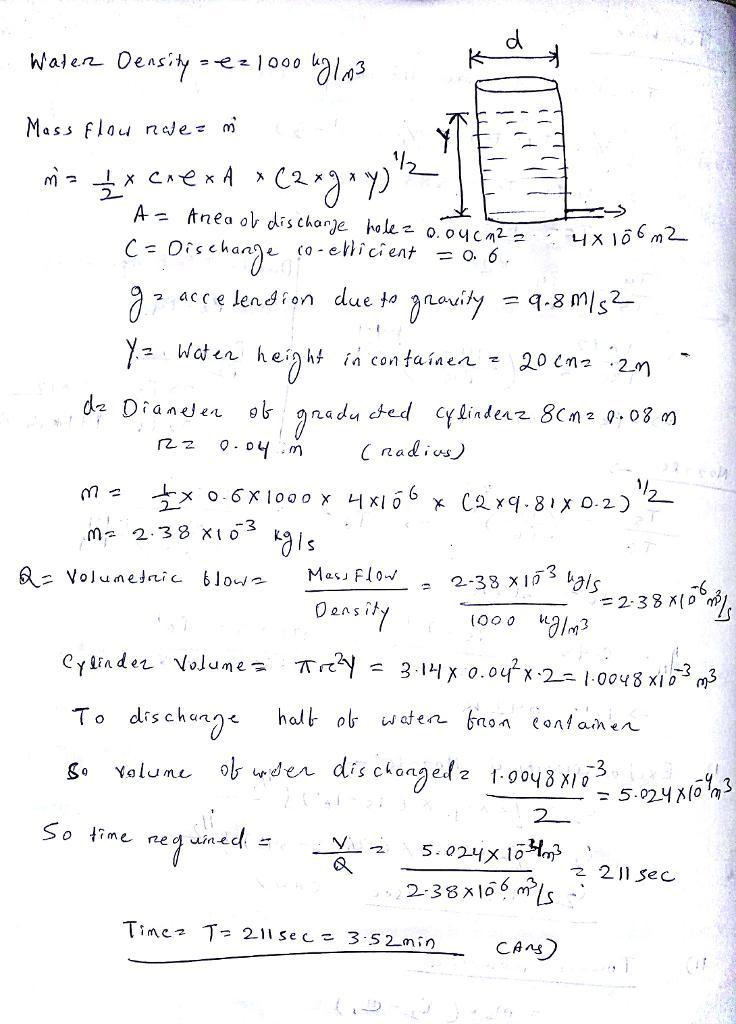 d
Water Density = ρ = 1000 kg/m3
Mass flow rate = ṁ
Y
ṁ = 1/2 x C x ρ x A x (2 x g x y)^1/2
A = Area of discharge hole = 0.04 cm2 = 4 x 10^-6 m2
C = Discharge co-efficient = 0.6.
g = acceleration due to gravity = 9.8 m/s2
Y = Water height in container = 20 cm = .2m
d = Diameter of graduated cylinder = 8cm = 0.08 m
r = 0.04 m (radius)
m = 1/2 x 0.6 x 1000 x 4x10^-6 x (2 x 9.81 x 0.2)^1/2
m = 2.38 x 10^-3 kg/s
Q = Volumetric flow = Mass Flow / Density = 2.38 x 10^-3 kg/s / 1000 kg/m3 = 2.38 x 10^-6 m3/s
Cylinder Volume = πr^2y = 3.14 x 0.04^2 x .2 = 1.0048 x 10^-3 m3
To discharge half of water from container
So volume of water discharged = 1.0048 x 10^-3 / 2 = 5.024 x 10^-4 m3
So time required = V/Q = 5.024 x 10^-4 m3 / 2.38 x 10^-6 m3/s = 211 sec
Time = T = 211 sec = 3.52 min (Ans)